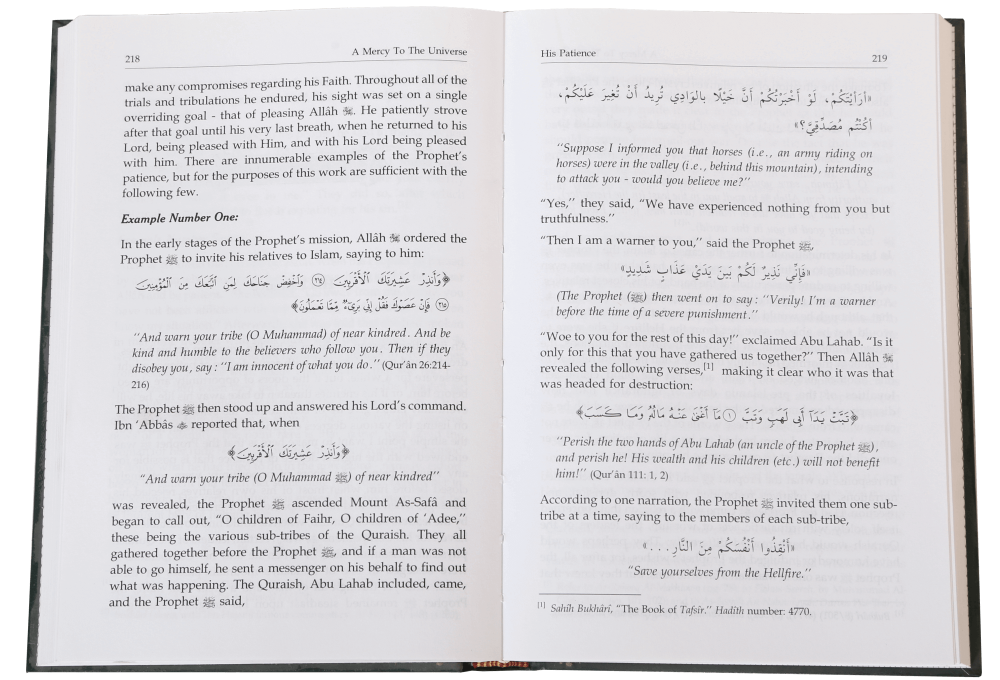 218
A Mercy To The Universe
make any compromises regarding his Faith. Throughout all of the
trials and tribulations he endured, his sight was set on a single
overriding goal - that of pleasing Allâh ﷻ. He patiently strove
after that goal until his very last breath, when he returned to his
Lord, being pleased with Him, and with his Lord being pleased
with him. There are innumerable examples of the Prophet’s
patience, but for the purposes of this work are sufficient with the
following few.
Example Number One:
In the early stages of the Prophet’s mission, Allâh ﷻ ordered the
Prophet ﷺ to invite his relatives to Islam, saying to him:
﴿وَأَنذِرْ عَشِيرَتَكَ ٱلْأَقْرَبِينَ ﴿٢١٤﴾ وَٱخْفِضْ جَنَاحَكَ لِمَنِ ٱتَّبَعَكَ مِنَ ٱلْمُؤْمِنِينَ
﴿٢١٥﴾ فَإِنْ عَصَوْكَ فَقُلْ إِنِّي بَرِيٓءٌ مِّمَّا تَعْمَلُونَ﴾
“And warn your tribe (O Muhammad) of near kindred. And be
kind and humble to the believers who follow you. Then if they
disobey you, say: “I am innocent of what you do.” (Qur’ân 26:214-
216)
The Prophet ﷺ then stood up and answered his Lord’s command.
Ibn ‘Abbâs reported that, when
﴿وَأَنذِرْ عَشِيرَتَكَ ٱلْأَقْرَبِينَ﴾
“And warn your tribe (O Muhammad ﷺ) of near kindred”
was revealed, the Prophet ﷺ ascended Mount As-Safâ and
began to call out, “O children of Faihr, O children of ‘Adee,”
these being the various sub-tribes of the Quraish. They all
gathered together before the Prophet ﷺ, and if a man was not
able to go himself, he sent a messenger on his behalf to find out
what was happening. The Quraish, Abu Lahab included, came,
and the Prophet ﷺ said,
His Patience
219
«أَرَأَيْتَكُمْ، لَوْ أَخْبَرْتُكُمْ أَنَّ خَيْلًا بِالْوَادِي تُرِيدُ أَنْ تُغِيرَ عَلَيْكُمْ،
أَكُنْتُم مُصَدِّقِيَّ؟»
“Suppose I informed you that horses (i.e., an army riding on
horses) were in the valley (i.e., behind this mountain), intending
to attack you - would you believe me?”
“Yes,” they said, “We have experienced nothing from you but
truthfulness.”
“Then I am a warner to you,” said the Prophet ﷺ,
«فَإِنِّي نَذِيرٌ لَكُمْ بَيْنَ يَدَيْ عَذَابٍ شَدِيدٍ»
(The Prophet (ﷺ) then went on to say: “Verily! I’m a warner
before the time of a severe punishment.”
“Woe to you for the rest of this day!” exclaimed Abu Lahab. “Is it
only for this that you have gathered us together?” Then Allâh ﷻ
revealed the following verses,[1] making it clear who it was that
was headed for destruction:
﴿تَبَّتْ يَدَآ أَبِي لَهَبٍ وَتَبَّ ﴿١﴾ مَآ أَغْنَىٰ عَنْهُ مَالُهُ وَمَا كَسَبَ﴾
“Perish the two hands of Abu Lahab (an uncle of the Prophet ﷺ),
and perish he! His wealth and his children (etc.) will not benefit
him!” (Qur’ân 111: 1, 2)
According to one narration, the Prophet ﷺ invited them one sub-
tribe at a time, saying to the members of each sub-tribe,
«أَنْقِذُوا أَنْفُسَكُمْ مِنَ النَّارِ . . .»
“Save yourselves from the Hellfire.”
[1] Sahîh Bukhârî, “The Book of Tafsîr.” Hadîth number: 4770.